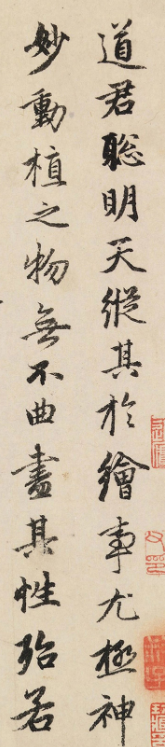 道君聡明天縱其於繪事尤極神
妙動植之物無不曲盡其性殆若